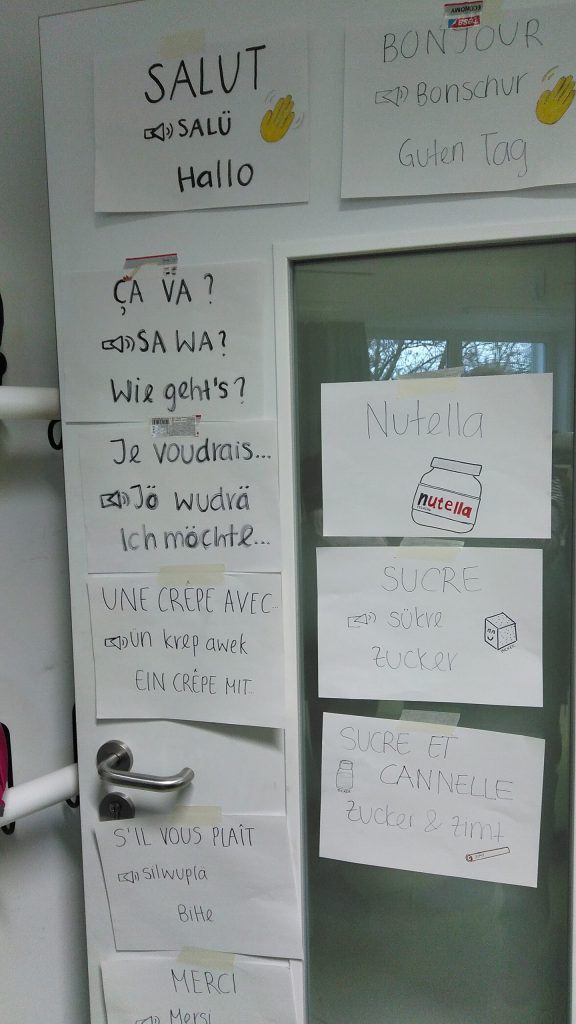 SALUT
SALÜ
Hallo
BONJOUR
Bonschur
Guten Tag
ÇA VA ?
SA WA?
Wie geht's?
Je voudrais...
Jö wudrä
Ich möchte...
UNE CRÊPE AVEC...
ün krep awek
EIN CRÊPE MIT...
S'IL VOUS PLAÎT
silwuplä
Bitte
MERCI
Mersi
Nutella
nutella
SUCRE
sükre
Zucker
SUCRE ET
CANNELLE
Zucker & Zimt